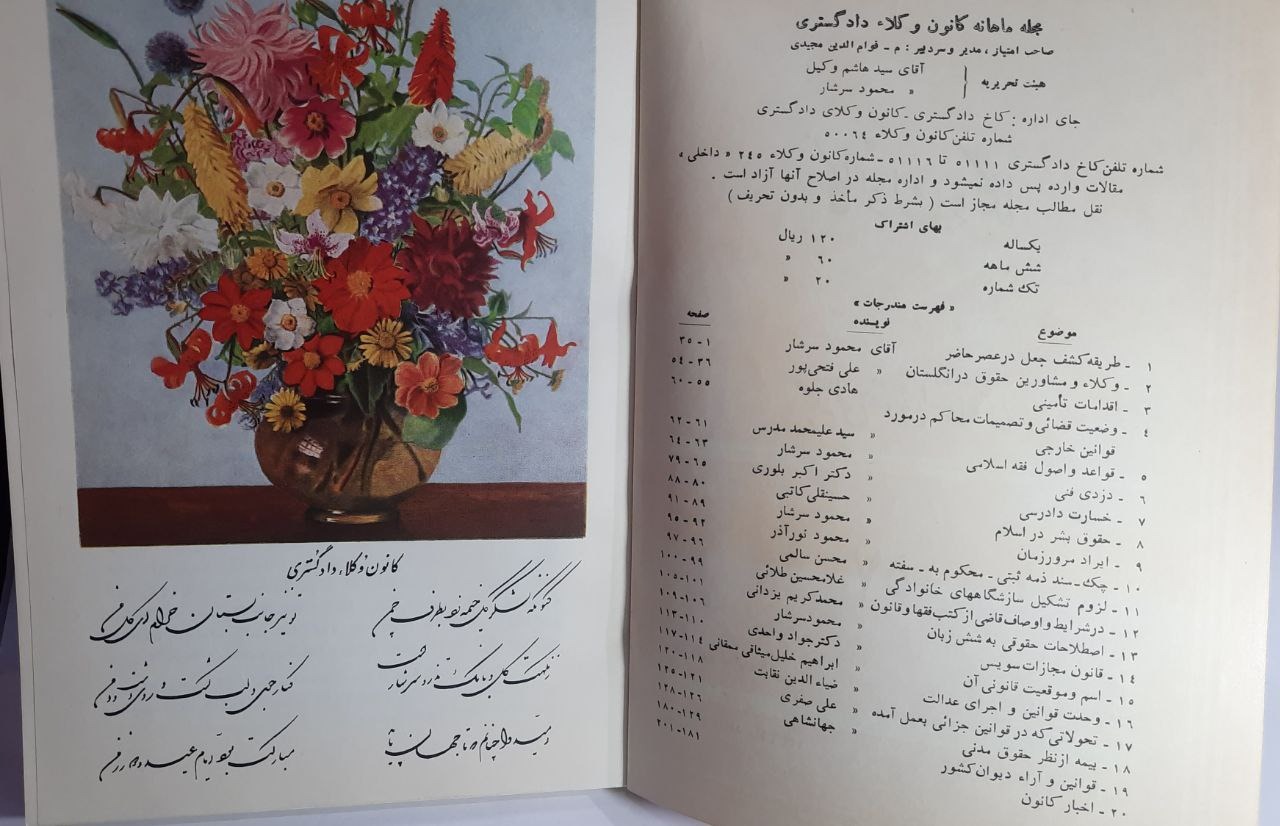 مجله ماهانه کانون وکلاء دادگستری
صاحب امتیاز ، مدیر و سردبیر : م - قوام الدین مجیدی
هیئت تحریریه آقای سید هاشم وکیل
« محمود سرشار
جای اداره : کاخ دادگستری - کانون وکلای دادگستری
شماره تلفن کانون وکلاء ۵۰۰۶۴
شماره تلفن کاخ دادگستری ۵۱۱۱۱ تا ۵۱۱۱۶ - شماره کانون وکلاء ۲۴۵ « داخلی »
مقالات وارده پس داده نمیشود و اداره مجله در اصلاح آنها آزاد است .
نقل مطالب مجله مجاز است ( بشرط ذکر مأخذ و بدون تحریف )
بهای اشتراک
یکساله ۱۲۰ ریال
شش ماهه ۶۰ «
تک شماره ۲۰ «
« فهرست مندرجات »
موضوع نویسنده صفحه
۱ - طریقه کشف جعل در عصر حاضر آقای محمود سرشار ۱ - ۳۵
۲ - وکلاء و مشاورین حقوق در انگلستان « علی فتحی‌پور ۳۶ - ۵۴
۳ - اقدامات تأمینی هادی جلوه ۵۵ - ۶۰
۴ - وضعیت قضائی و تصمیمات محاکم در مورد
قوانین خارجی « سید علیمحمد مدرس ۶۱ - ۶۲
۵ - قواعد و اصول فقه اسلامی « محمود سرشار ۶۳ - ۶۴
۶ - دزدی فنی « دکتر اکبر بلوری ۶۵ - ۷۹
۷ - خسارت دادرسی « حسینقلی کاتبی ۸۰ - ۸۸
۸ - حقوق بشر در اسلام « محمود سرشار ۸۹ - ۹۱
۹ - ایراد مرور زمان « محمود نورآذر ۹۲ - ۹۵
۱۰ - چک - سند ذمه ثبتی - محکوم به - سفته « محسن سالمی ۹۶ - ۹۷
۱۱ - لزوم تشکیل سازشگاههای خانوادگی « غلامحسین طلائی ۹۹ - ۱۰۰
۱۲ - در شرایط و اوصاف قاضی از کتب فقها و قانون « محمد کریم یزدانی ۱۰۱ - ۱۰۵
۱۳ - اصطلاحات حقوقی به شش زبان « محمود سرشار ۱۰۶ - ۱۰۹
۱۴ - قانون مجازات سویس « دکتر جواد واحدی ۱۱۰ - ۱۱۳
۱۵ - اسم و موقعیت قانونی آن « ابراهیم خلیل میثاقی ممقانی ۱۱۴ - ۱۱۷
۱۶ - وحدت قوانین و اجرای عدالت « ضیاء الدین نقابت ۱۱۸ - ۱۲۰
۱۷ - تحولاتی که در قوانین جزائی بعمل آمده « علی صفری ۱۲۱ - ۱۲۵
۱۸ - بیمه از نظر حقوق مدنی « جهانشاهی ۱۲۶ - ۱۲۸
۱۹ - قوانین و آراء دیوان کشور ۱۲۹ - ۱۸۰
۲۰ - اخبار کانون ۱۸۱ - ۲۰۱
کانون وکلاء دادگستری
کنونکه لشکر گل خیمه زد بطرف چمن تو نیز جانب بستان خرام ای گل من
ز نکهت گل و بانگ تذرو کنار جوی و لب کشت و روی دشت و دمن
تا جهان مبارکت بود ایام عید و